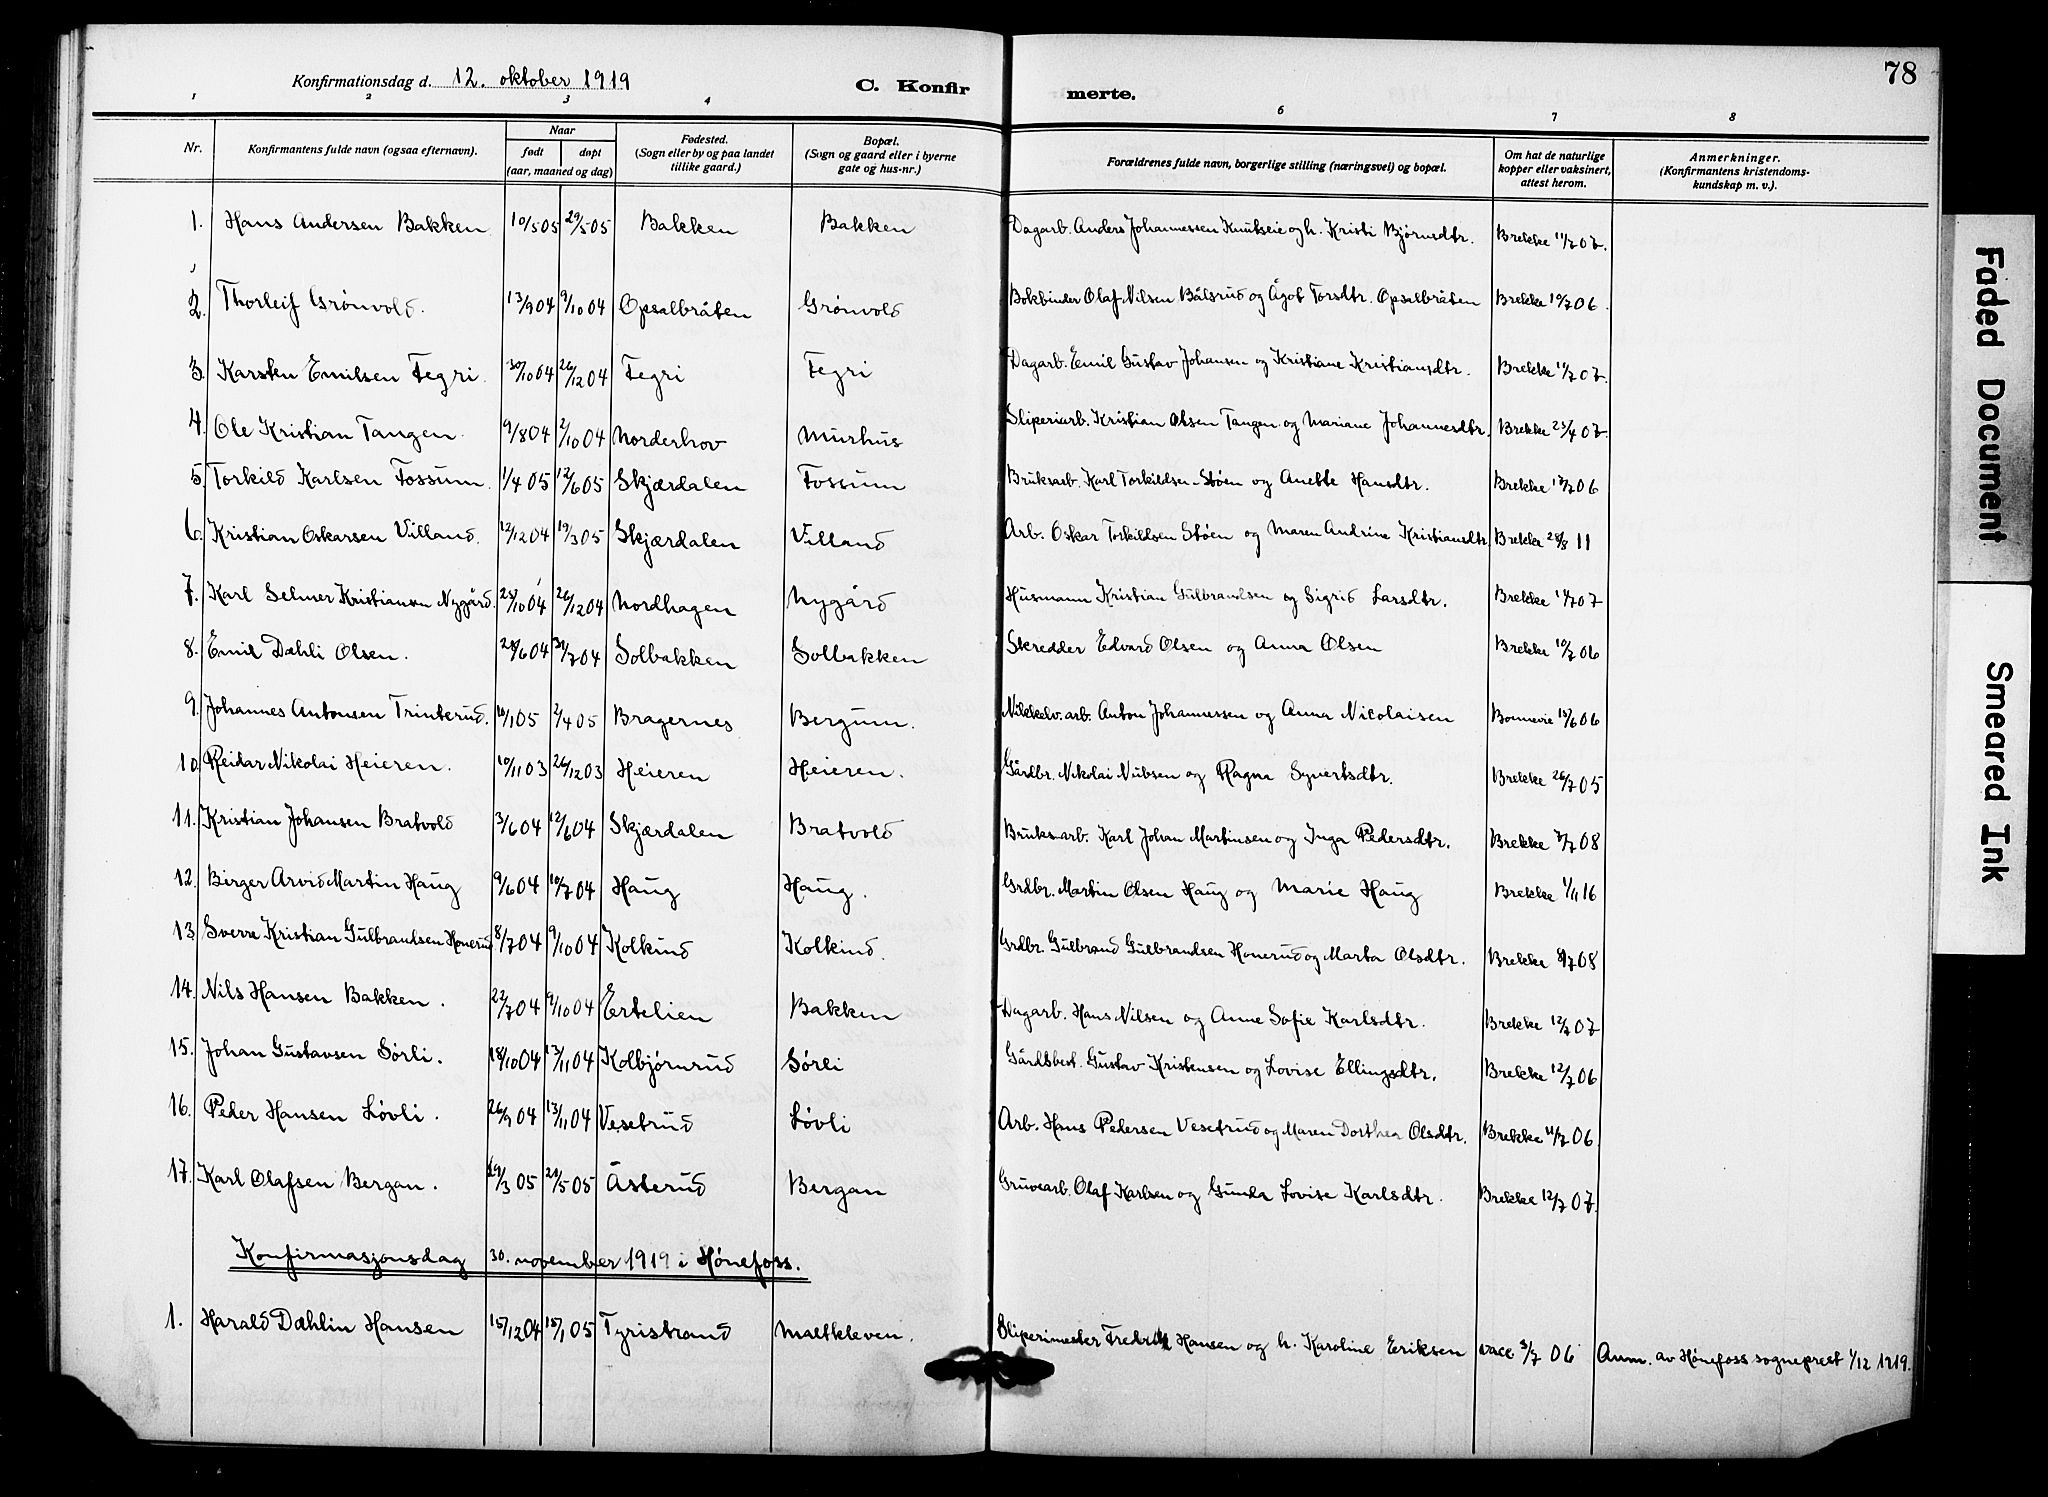 78
Konfirmationsdag d. 12. oktober 1919 C. Konfir merte.
1 2 3 4 5 6 7 8
Nr. Konfirmantens fulde navn (ogsaa efternavn). Naar født døpt (aar, maaned og dag) Fødested. (Sogn eller by og paa landet tillike gaard.) Bopæl. (Sogn og gaard eller i byerne gate og hus-nr.) Forældrenes fulde navn, borgerlige stilling (næringsvei) og bopæl. Om hat de naturlige kopper eller vaksinert, attest herom. Anmerkninger. (Konfirmantens kristendoms-kundskap m. v.).
1. Hans Andersen Bakken 10/5 05 29/5 05 Bakken Bakken Dagarb. Anders Johannessen Knutseie og h. Kristi Bjørnsdtr. Brekke 11/7 07.
2. Thorleif Grønvold. 13/9 04 9/10 04 Opsalbråten Grønvold Bokbinder Olaf Nilsen Bålsrud og Ågot Torsdtr. Opsalbråten Brekke 10/7 06.
3. Karsten Emilsen Fegri. 30/10 04 26/12 04 Fegri Fegri Dagarb. Emil Gustav Johansen og Kristiane Kristiansdtr. Brekke 11/7 07.
4. Ole Kristian Tangen. 9/8 04 2/10 04 Norderhov Murhus Sliperiarb. Kristian Olsen Tangen og Mariane Johannesdtr. Brekke 23/4 07.
5. Torkild Karlsen Fossum. 1/4 05 12/6 05 Skjærdalen Fossum Bruksarb. Karl Torkildsen Støen og Anette Hansdtr. Brekke 12/7 06
6. Kristian Oskarsen Villand. 12/12 04 19/3 05 Skjærdalen Villand Arb. Oskar Torkildsen Støen og Maren Andrine Kristiansdtr. Brekke 28/8 11
7. Karl Selmer Kristiansen Nygård. 25/10 04 26/12 04 Nordhagen Nygård Husmann Kristian Gulbrandsen og Sigrid Larsdtr. Brekke 11/7 07
8. Emil Dæhli Olsen. 28/6 04 31/7 04 Solbakken Solbakken Skredder Edvard Olsen og Anna Olsen Brekke 10/7 06
9. Johannes Antonsen Trinterud. 10/1 05 2/4 05 Bragernes Bergum. Nikkelv. arb. Anton Johannessen og Anna Nicolaisen Bonnevie 15/6 06
10. Reidar Nikolai Heieren. 10/11 03 26/12 03 Heieren Heieren. Gårdbr. Nikolai Nubsen og Ragna Syvertsdtr. Brekke 26/7 05
11. Kristian Johansen Bratvold 3/6 04 12/6 04 Skjærdalen Bratvold Bruksarb. Karl Johan Martinsen og Inga Pedersdtr. Brekke 7/7 08
12. Birger Arvid Martin Haug 9/6 04 10/7 04 Haug Haug. Grdbr. Martin Olsen Haug og Marie Haug Brekke 1/11 16
13. Sverre Kristian Gulbrandsen Honerud 8/7 04 9/10 04 Kolkind Kolkind. Grdbr. Gulbrand Gulbrandsen Honerud og Marta Olsdtr. Brekke 8/7 08
14. Nils Hansen Bakken. 22/7 04 9/10 04 Ertelien Bakken Dagarb. Hans Nilsen og Anne Sofie Karlsdtr. Brekke 12/7 07
15. Johan Gustavsen Sørli. 18/10 04 13/11 04 Kolbjørnrud Sørli Gårdsbest. Gustav Kristensen og Lovise Ellingsdtr. Brekke 12/7 06
16. Peder Hansen Løvli. 26/9 04 13/11 04 Vesetrud Løvli Arb. Hans Pedersen Vesetrud og Maren Dorthea Olsdtr. Brekke 11/7 06
17. Karl Olafsen Bergan. 29/3 05 28/5 05 Åsterud Bergan Gruvearb. Olaf Karlsen og Gunda Lovise Karlsdtr. Brekke 12/7 07.
Konfirmasjonsdag 30. november 1919 i Hønefoss.
1. Harald Dæhlin Hansen 15/12 04 15/1 05 Tyristrand Maltkleven. Sliperimester Fredrik Hansen og h. Karoline Eriksen vacc 3/7 06 Anm. av Hønefoss sogneprest 1/12 1919.
Faded Document
Smeared Ink